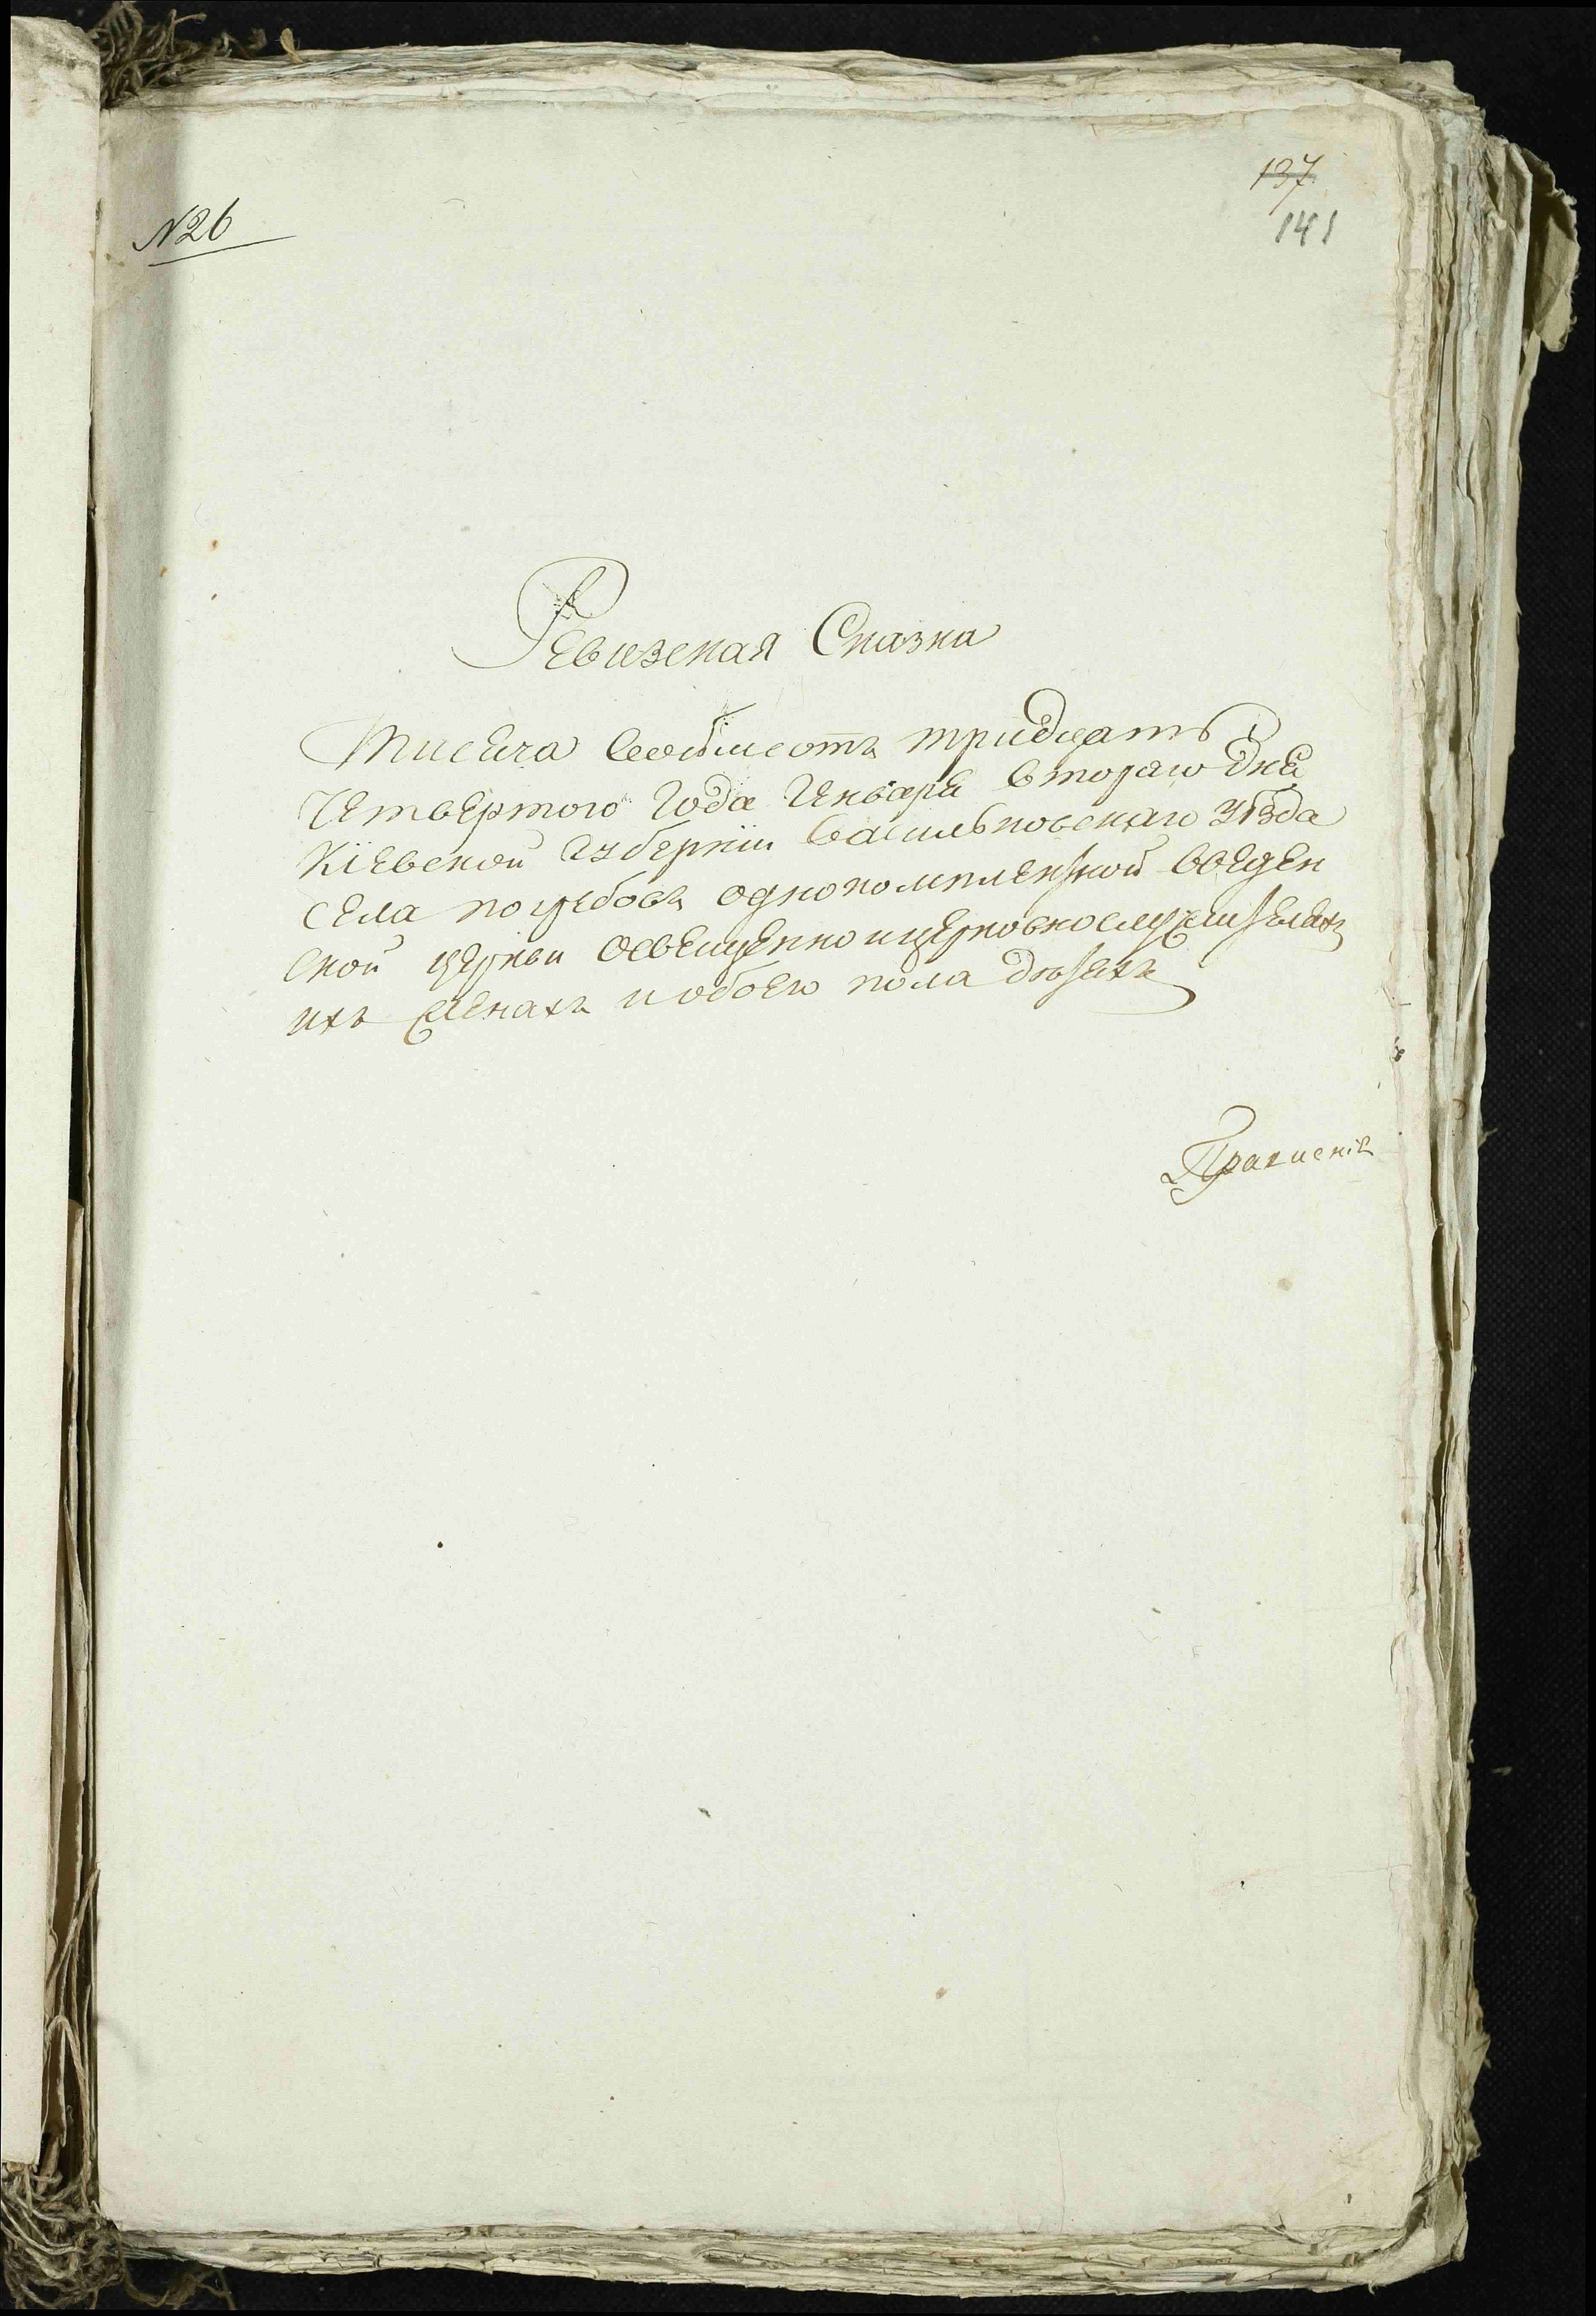 137
141
N 26
Ревизская Сказка
тисеча восѣмсотъ тридцать
четвертого года Генваря второго дня
Кіевской губерніи Васильковскаго уѣзда
села погребовъ однокомплектной введен
ской церкви освещенно и церковнослужителяхъ
ихъ женахъ и обоего пола дѣтяхъ